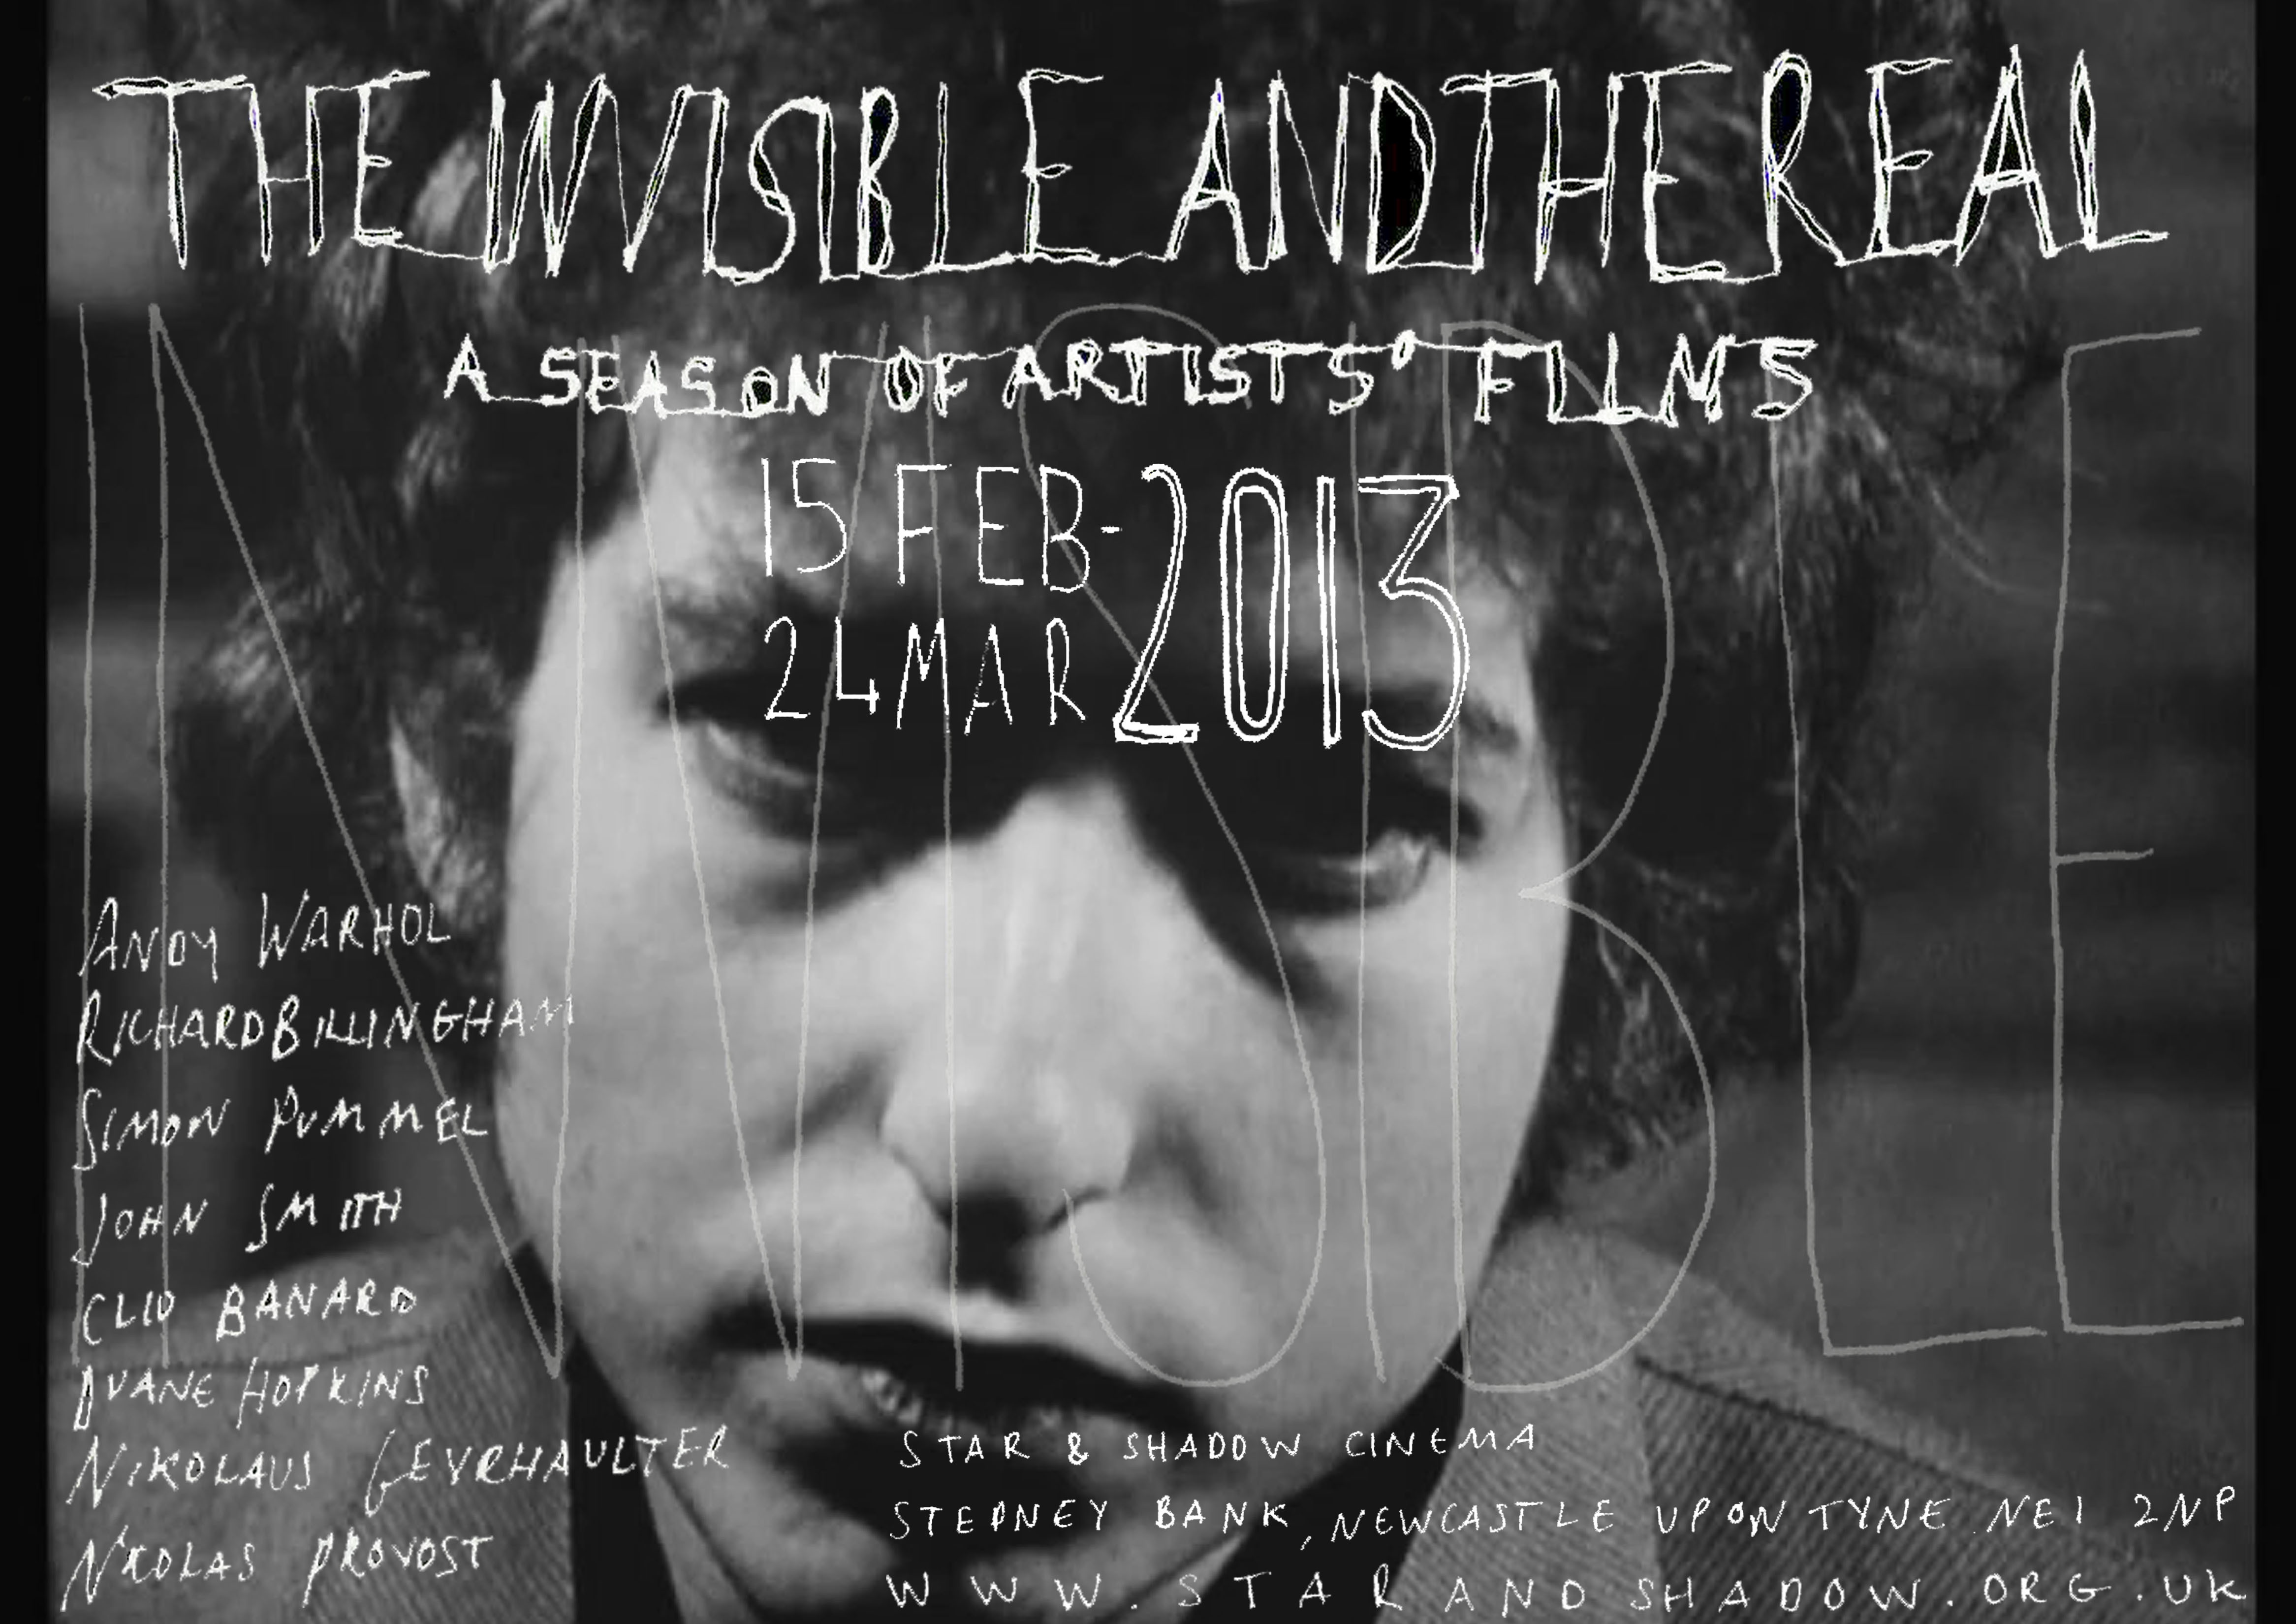 THE INVISIBLE AND THE REAL
A SEASON OF ARTISTS' FILMS
15 FEB-
24 MAR 2013
INVISIBLE
ANDY WARHOL
RICHARD BILLINGHAM
SIMON PUMMEL
JOHN SMITH
CLIO BANARD
DUANE HOPKINS
NIKOLAUS GEYRHAULTER
NICOLAS PROVOST
STAR & SHADOW CINEMA
STEPNEY BANK, NEWCASTLE UPON TYNE NE1 2NP
WWW.STARANDSHADOW.ORG.UK